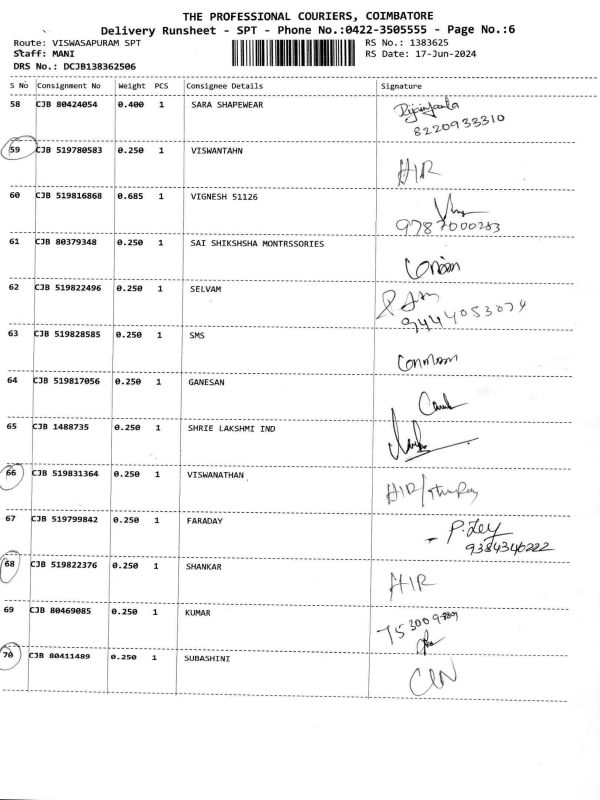 THE PROFESSIONAL COURIERS, COIMBATORE
Delivery Runsheet - SPT - Phone No.:0422-3505555 - Page No.:6
Route: VISWASAPURAM SPT RS No.: 1383625
Staff: MANI RS Date: 17-Jun-2024
DRS No.: DCJB138362506
S No Consignment No Weight PCS Consignee Details Signature
58 CJB 80424054 0.400 1 SARA SHAPEWEAR
8220933310
59 CJB 519780583 0.250 1 VISWANTAHN
HIR
60 CJB 519816868 0.685 1 VIGNESH 51126
9787000283
61 CJB 80379348 0.250 1 SAI SHIKSHSHA MONTRSSORIES
62 CJB 519822496 0.250 1 SELVAM
9444053074
63 CJB 519828585 0.250 1 SMS
64 CJB 519817056 0.250 1 GANESAN
65 CJB 1488735 0.250 1 SHRIE LAKSHMI IND
66 CJB 519831364 0.250 1 VISWANATHAN
HIR/
67 CJB 519799842 0.250 1 FARADAY
9384346222
68 CJB 519822376 0.250 1 SHANKAR
HIR
69 CJB 80469085 0.250 1 KUMAR
70 CJB 80411489 0.250 1 SUBASHINI